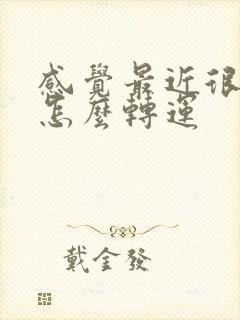 感覺最近很
怎麼轉運
戴金發